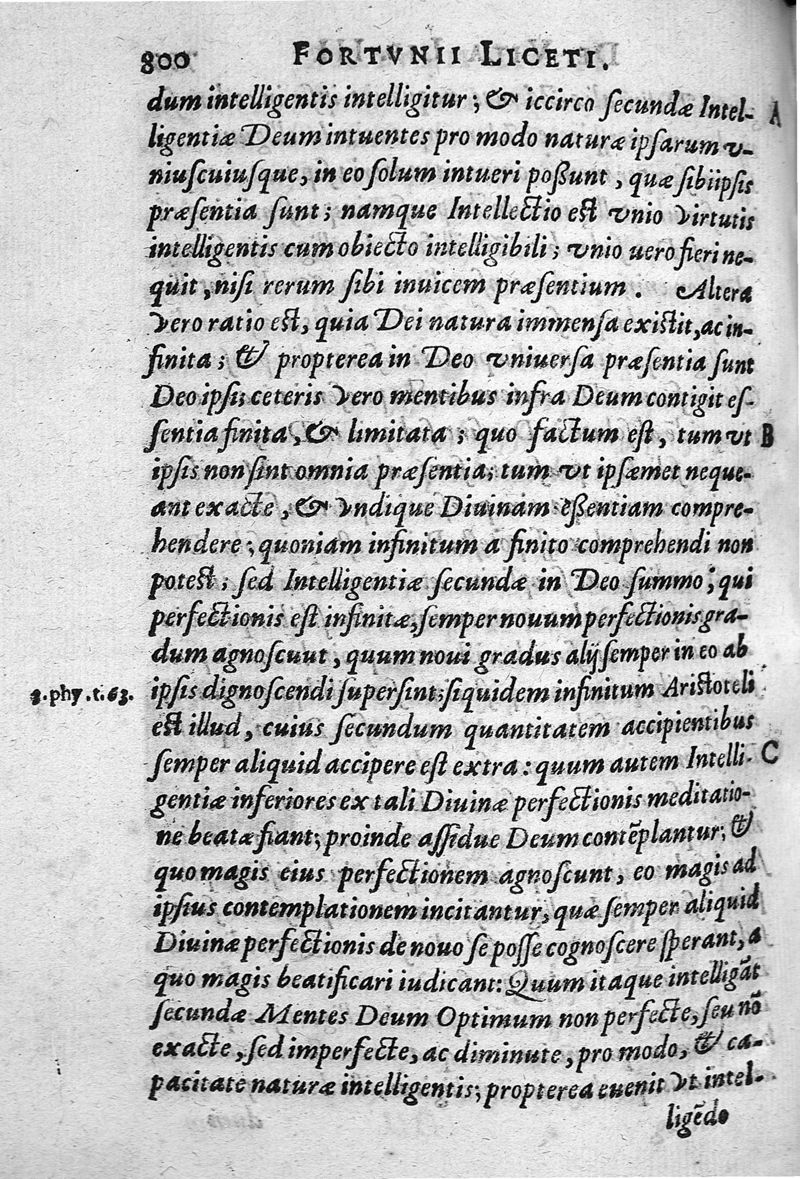 800 FORTVNII LICETI.
dum intelligentis intelligitur; & iccirco secundæ Intel- A
ligentiæ Deum intuentes pro modo naturæ ipsarum v-
niuscuiusque, in eo solum intueri possunt, quæ sibiipsis
præsentia sunt; namque Intellectio est vnio virtutis
intelligentis cum obiecto intelligibili; vnio uero fieri ne-
quit, nisi rerum sibi inuicem præsentium. Altera
vero ratio est, quia Dei natura immensa existit, ac in-
finita; & propterea in Deo vniuersa præsentia sunt
Deo ipsi; ceteris vero mentibus infra Deum contigit es-
sentia finita, & limitata; quo factum est, tum vt B
ipsis non sint omnia præsentia; tum vt ipsæmet neque-
ant exacte, & vndique Diuinam essentiam compre-
hendere; quoniam infinitum a finito comprehendi non
potest; sed Intelligentiæ secundæ in Deo summo, qui
perfectionis est infinitæ, semper nouum perfectionis gra-
dum agnoscuut, quum noui gradus alij semper in eo ab
3. phy. t. 63. ipsis dignoscendi supersint; siquidem infinitum Aristoteli
est illud, cuius secundum quantitatem accipientibus
semper aliquid accipere est extra: quum autem Intelli- C
gentiæ inferiores ex tali Diuinæ perfectionis meditatio-
ne beatæ fiant; proinde assidue Deum contẽplantur; &
quo magis eius perfectionem agnoscunt, eo magis ad
ipsius contemplationem incitantur, quæ semper aliquid
Diuinæ perfectionis de nouo se posse cognoscere sperant, a
quo magis beatificari iudicant: Quum itaque intelligãt
secundæ Mentes Deum Optimum non perfecte, seu nõ
exacte, sed imperfecte, ac diminute, pro modo, & ca-
pacitate naturæ intelligentis; propterea euenit vt intel-
ligẽdo